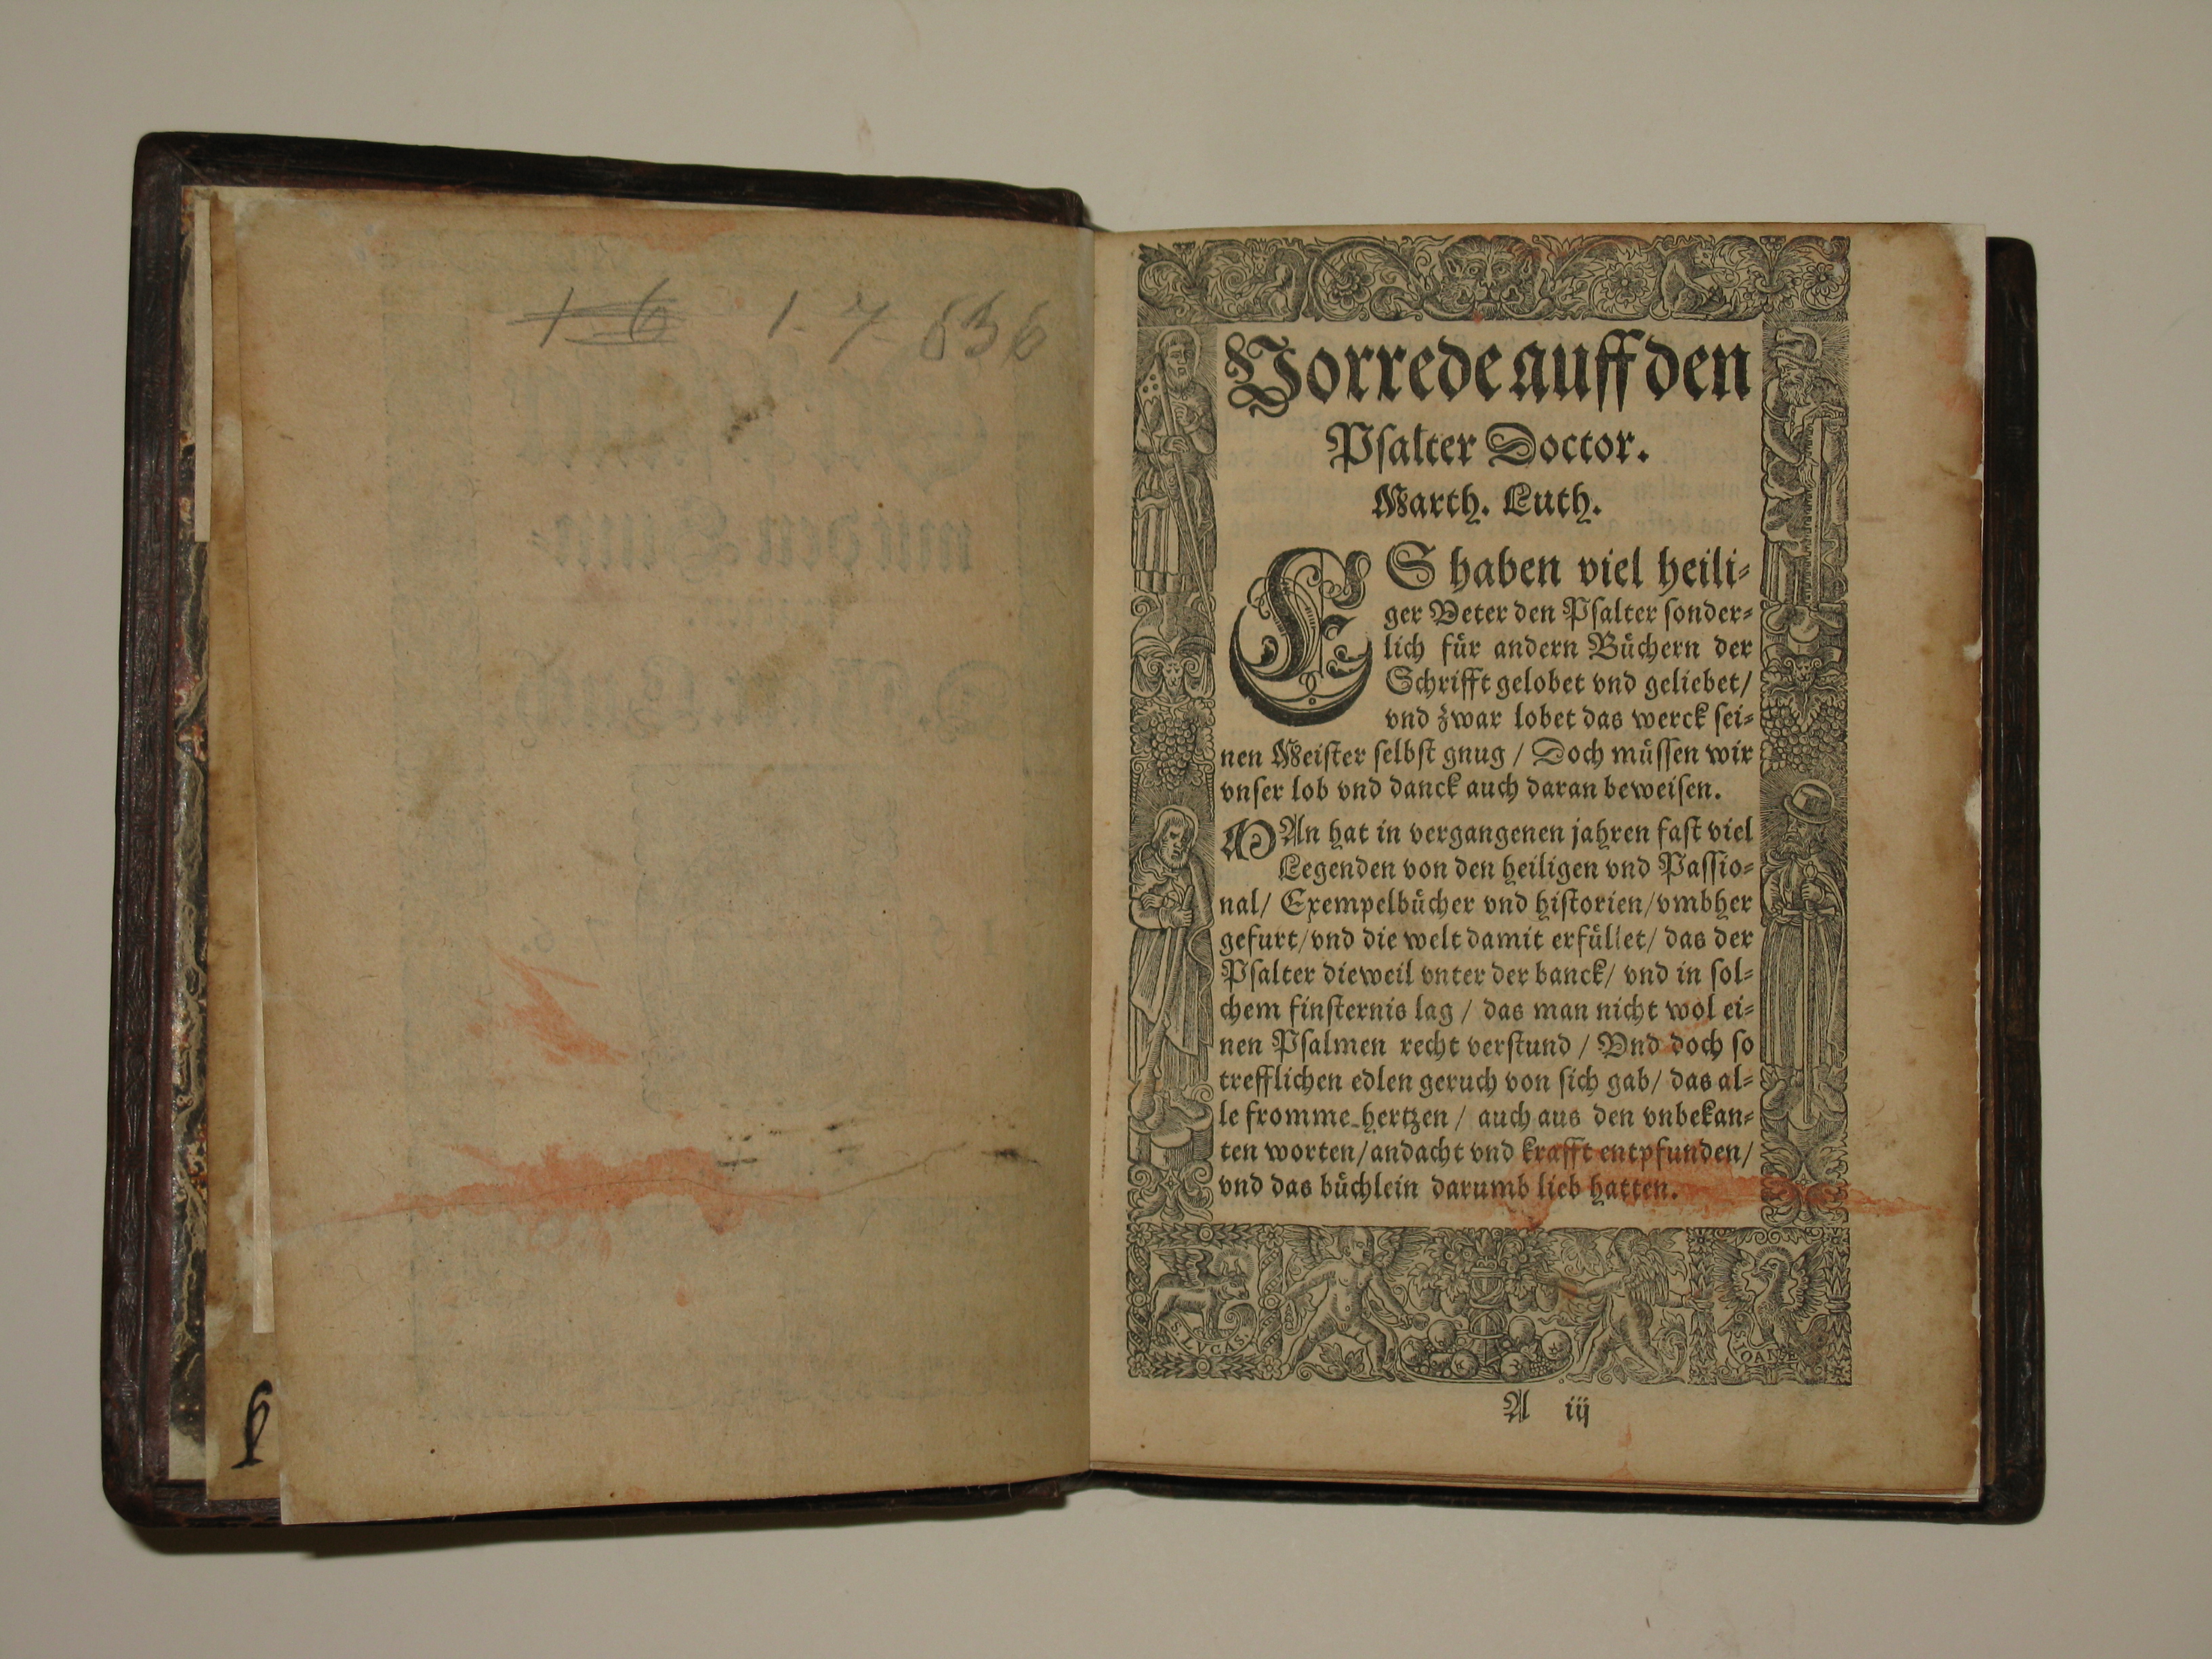 1-6 1-7-636
Vorrede auff den
Psalter Doctor.
Marth. Luth.
ES haben viel heili-
ger Veter den Psalter sonder-
lich für andern Büchern der
Schrifft gelobet vnd geliebet/
vnd zwar lobet das werck sei-
nen Meister selbst gnug / Doch müssen wir
vnser lob vnd danck auch daran beweisen.
MAn hat in vergangenen jahren fast viel
Legenden von den heiligen vnd Passio-
nal/ Exempelbücher vnd historien/vmbher
gefurt/vnd die welt damit erfüllet/ das der
Psalter dieweil vnter der banck/ vnd in sol-
chem finsternis lag / das man nicht wol ei-
nen Psalmen recht verstund / Vnd doch so
trefflichen edlen geruch von sich gab/ das al-
le fromme hertzen / auch aus den vnbekan-
ten worten/andacht vnd krafft entpfunden/
vnd das büchlein darumb lieb hatten.
S LVCAS
S IOANE
A iij